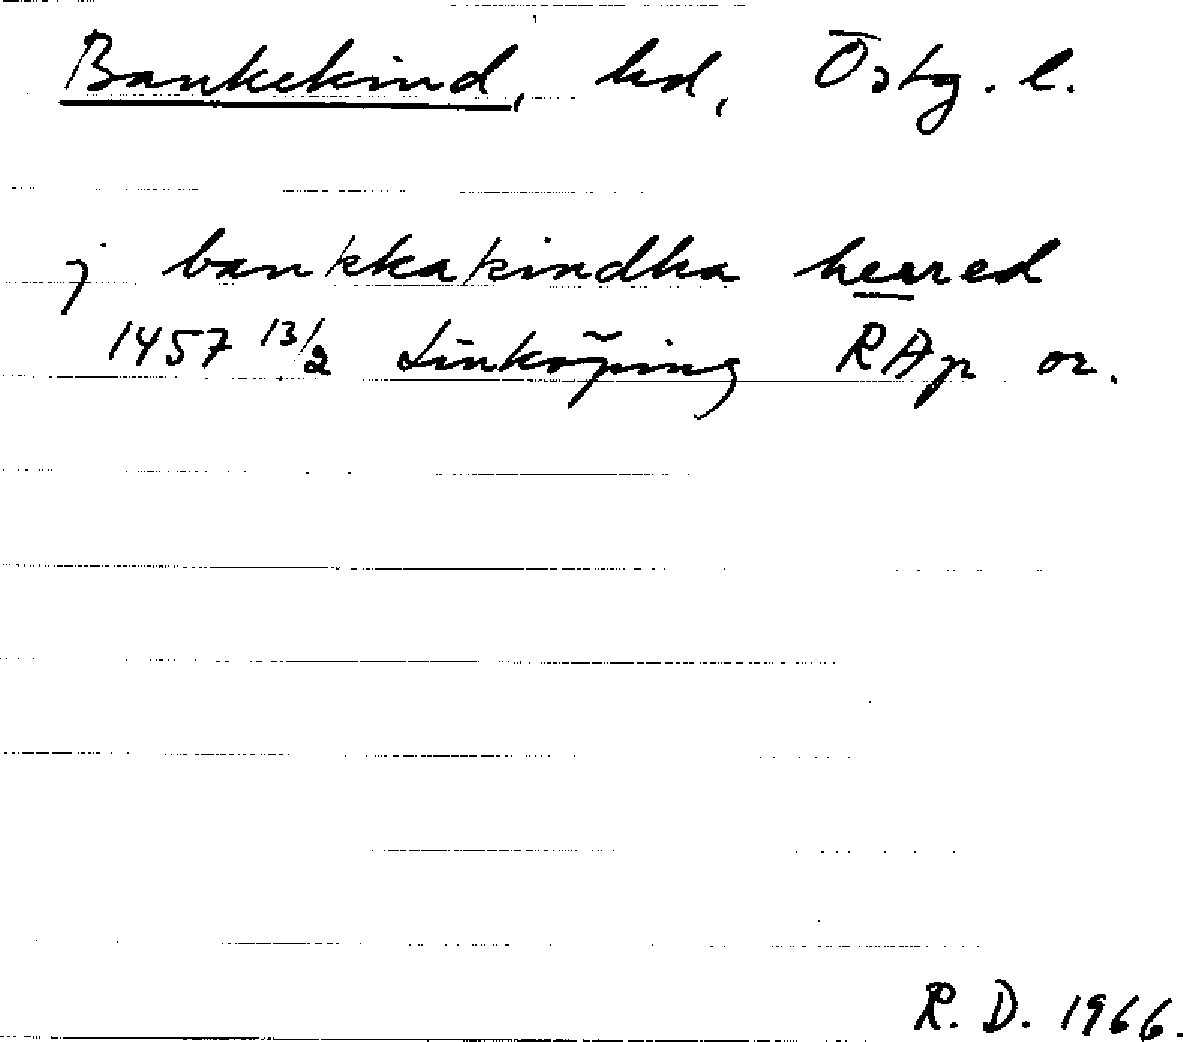 Bankekind, hd, Östg. l.
j bankkakindha herred
1457 13/2 Linköping RAp or.
R. D. 1966.